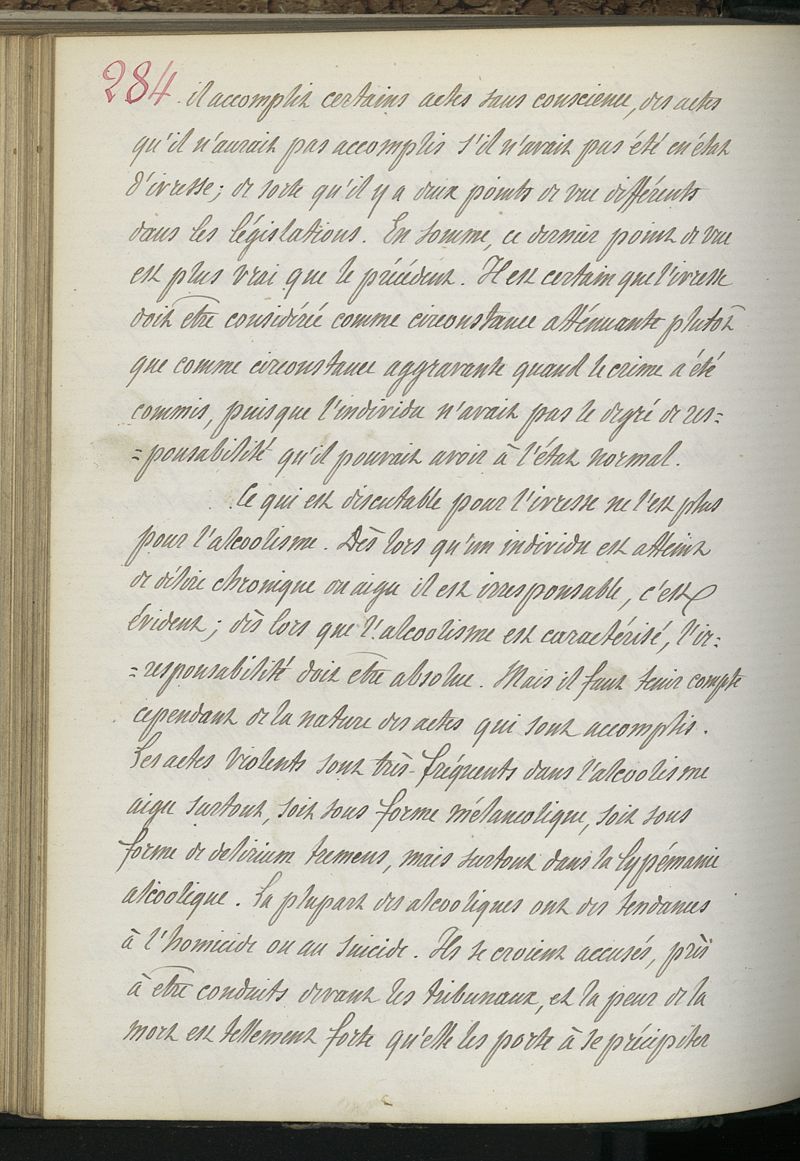 284
il accomplit certains actes sans conscience, des actes
qu'il n'aurait pas accomplis s'il n'avait pas été en état
d'ivresse; de sorte qu'il y a deux points de vue différents
dans les législations. En somme, ce dernier point de vue
est plus vrai que le précédent. Il est certain que l'ivresse
doit être considérée comme circonstance atténuante plutôt
que comme circonstance aggravante quand le crime a été
commis, puisque l'individu n'avait pas le degré de res=
=ponsabilité qu'il pouvait avoir à l'état normal.
Ce qui est discutable pour l'ivresse ne l'est plus
pour l'alcoolisme. Dès lors qu'un individu est atteint
de délire chronique ou aigu il est irresponsable, c'est
évident; dès lors que l'alcoolisme est caractérisé, l'ir=
=responsabilité doit être absolue. Mais il faut tenir compte
cependant de la nature des actes qui sont accomplis.
Les actes violents sont très-fréquents dans l'alcoolisme
aigu surtout, soit sous forme mélancolique, soit sous
forme de delirium tremens, mais surtout dans la lypémanie
alcoolique. La plupart des alcooliques ont des tendances
à l'homicide ou au suicide. Ils se croient accusés, près
à être conduits devant les tribunaux, et la peur de la
mort est tellement forte qu'elle les porte à se précipiter